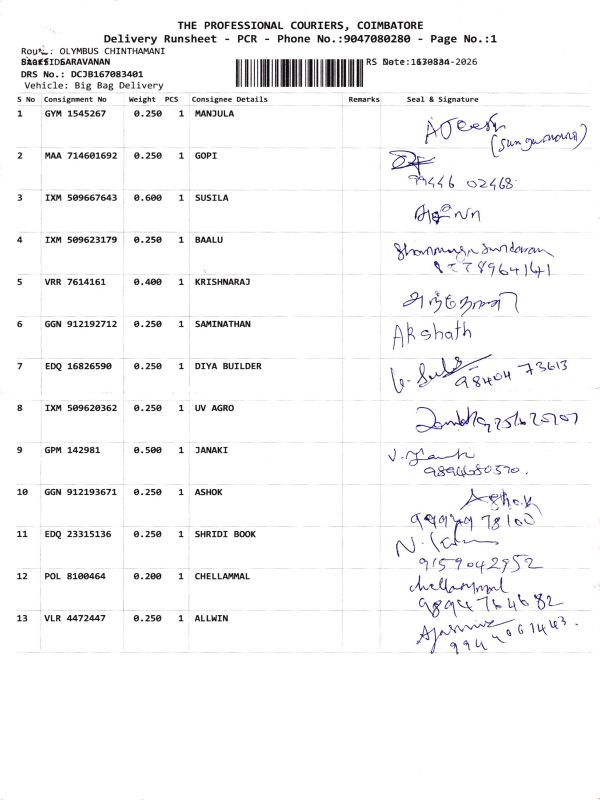 THE PROFESSIONAL COURIERS, COIMBATORE
Delivery Runsheet - PCR - Phone No.:9047080280 - Page No.:1
Route: OLYMBUS CHINTHAMANI
SARAVANAN
DRS No.: DCJB167083401
Vehicle: Big Bag Delivery
S No Consignment No Weight PCS Consignee Details Remarks Seal & Signature
1 GYM 1545267 0.250 1 MANJULA
2 MAA 714601692 0.250 1 GOPI
99446 02468
3 IXM 509667643 0.600 1 SUSILA
4 IXM 509623179 0.250 1 BAALU
Shanmuga Sundaram
5 VRR 7614161 0.400 1 KRISHNARAJ
6 GGN 912192712 0.250 1 SAMINATHAN Akshath
7 EDQ 16826590 0.250 1 DIYA BUILDER
98404 73613
8 IXM 509620362 0.250 1 UV AGRO
9 GPM 142981 0.500 1 JANAKI
9894680570.
10 GGN 912193671 0.250 1 ASHOK Ashok
11 EDQ 23315136 0.250 1 SHRIDI BOOK
9159042952
12 POL 8100464 0.200 1 CHELLAMMAL chellammal
9894764682
13 VLR 4472447 0.250 1 ALLWIN